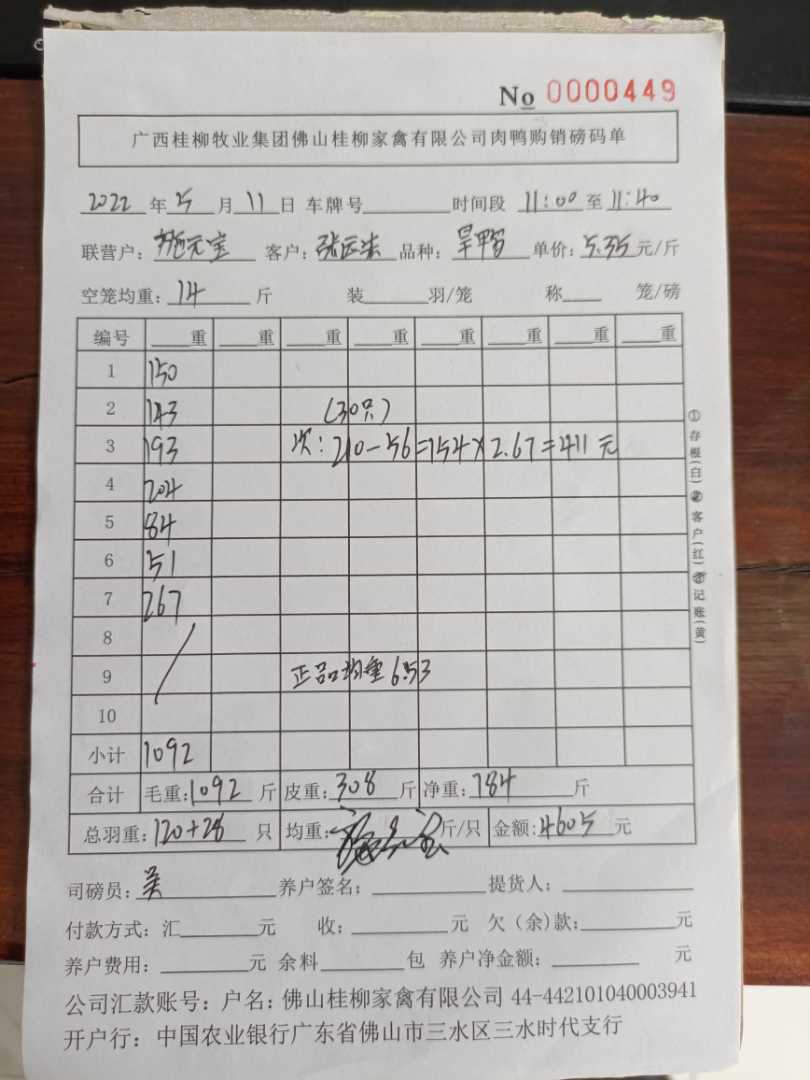 No 0000449
广西桂柳牧业集团佛山桂柳家禽有限公司肉鸭购销磅码单
2022年5月11日 车牌号 时间段 11:00至11:40
联营户:施元宝 客户: 品种:旱鸭 单价:5.35元/斤
空笼均重:14斤 装 羽/笼 称 笼/磅
编号 重 重 重 重 重 重 重 重
1 150
2 143 (30只)
3 193 次:210-56=154×2.67=411元
4 204
5 84
6 51
7 267
8
9 正品均重6.53
10
小计 1092
合计 毛重:1092斤 皮重:308斤 净重:784斤
总羽重:120+28只 均重: 斤/只 金额:4605元
司磅员:吴 养户签名: 提货人:
付款方式:汇 元 收: 元 欠(余)款: 元
养户费用: 元 余料 包 养户净金额: 元
公司汇款账号:户名:佛山桂柳家禽有限公司 44-442101040003941
开户行:中国农业银行广东省佛山市三水区三水时代支行
①存根(白)②客户(红)③记账(黄)